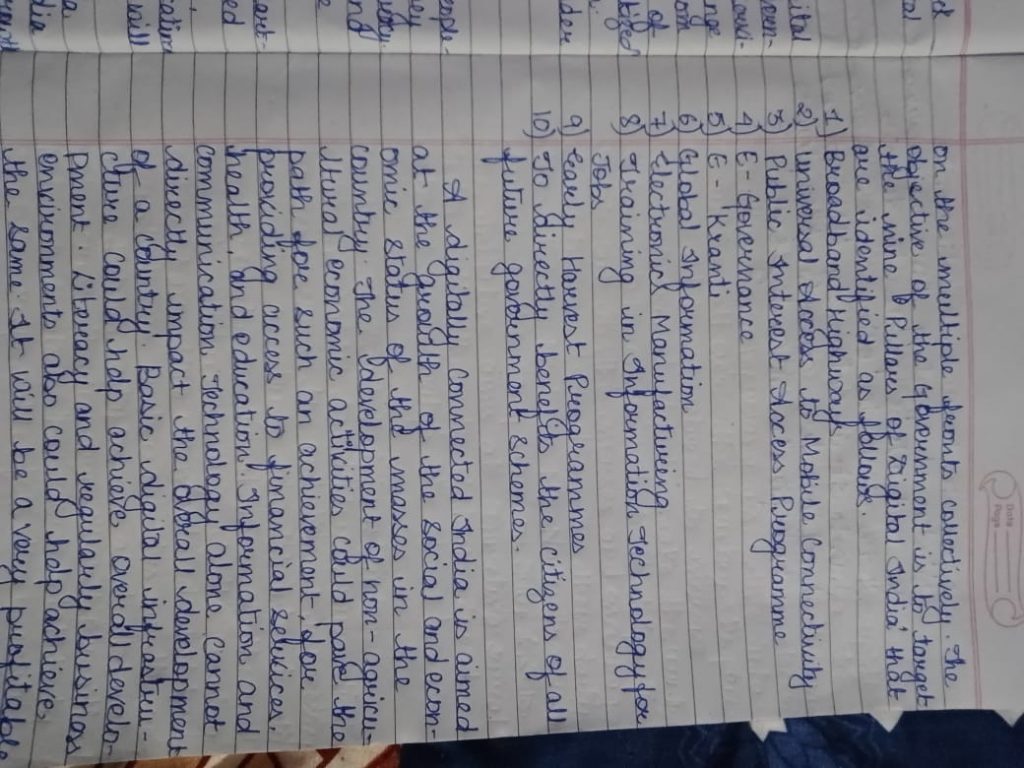 Date
Page
on the multiple fronts collectively. The
objective of the Government is to target
'the nine Pillars of Digital India' that
are identified as follows.
1) Broadband Highways
2) Universal Access to Mobile Connectivity
3) Public Interest Access Programme
4) E-Governance
5) E-Kranti
6) Global Information
7) Electronics Manufacturing
8) Training in Information Technology for
Jobs
9) Early Harvest Programmes
10) To directly benefits the citizens of all
future government schemes.
A digitally connected India is aimed
at the growth of the social and econ-
omic status of the masses in the
country. The development of non-agricu-
ltural economic activities could pave the
path for such an achievement, for
providing access to financial services,
health, and education. Information and
communication Technology alone cannot
directly impact the overall development
of a country. Basic digital infrastru-
cture could help achieve overall develo-
pment. Literacy and regularly business
environments also could help achieve
the same. It will be a very profitable